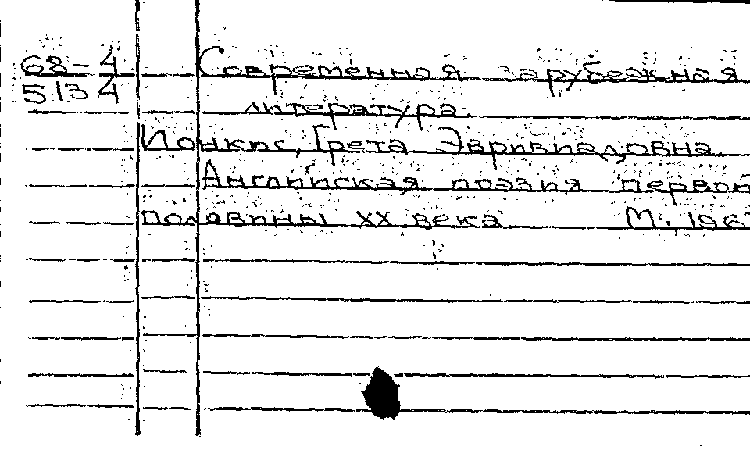 68-4 Современная зарубежная
5134 литература.
Ионкис, Грета Эвривиадовна
Английская поэзия первой
половины XX века М., 196